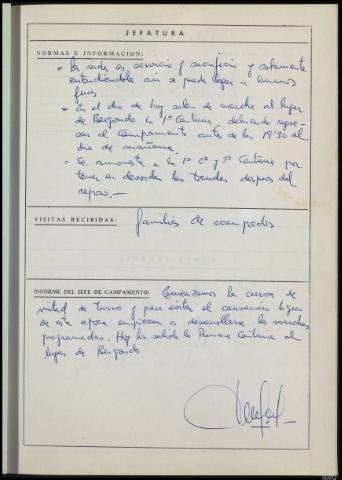 JEFATURA
NORMAS E INFORMACION:
* La vida es servicio y sacrificio y solamente
entendiéndola así se puede llegar a buenos
fines
* En el día de hoy sale de marcha al lugar
de Bergondo la 1ª Centuria, debiendo regre-
sar al Campamento antes de las 19'30 del
día de mañana.
* Se amonesta a la 1ª 2ª y 3ª Centuria por
tener en desorden las tiendas después del
reposo.—
VISITAS RECIBIDAS: familias de acampados
INFORME DEL JEFE DE CAMPAMENTO: Comenzamos la curva de
mitad de turno y para evitar el cansancio lógico
de esta época empiezan a desarrollarse las marchas
programadas. Hoy ha salido la Primera Centuria al
lugar de Bergondo